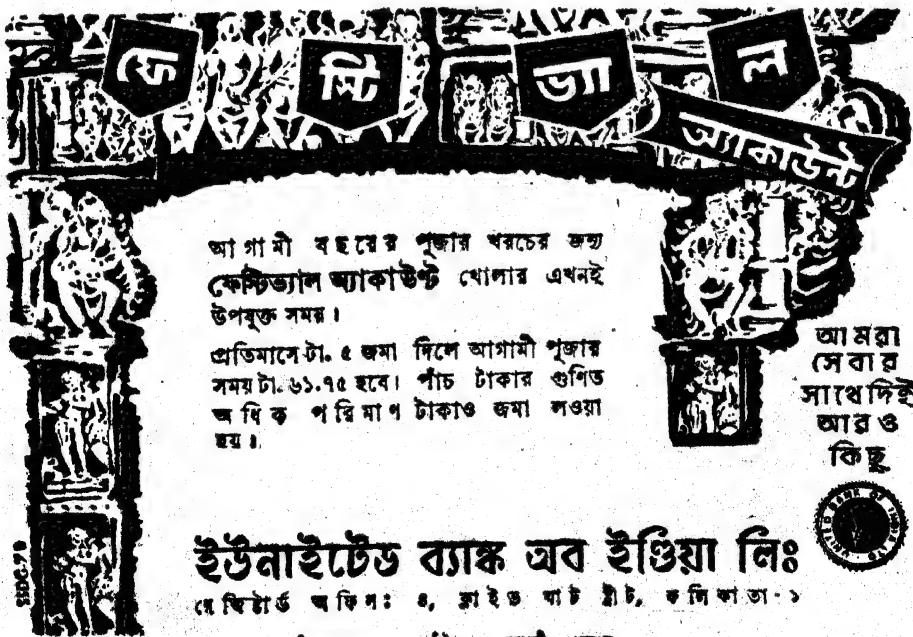 ফেস্টিভ্যাল
অ্যাকাউন্ট
আগামী বছরের পূজার খরচের জন্য
ফেস্টিভ্যাল অ্যাকাউন্ট খোলার এখনই
উপযুক্ত সময়।
প্রতিমাসে টা. ৫ জমা দিলে আগামী পূজার
সময় টা. ৬১.৭৫ হবে। পাঁচ টাকার গুণিত
অধিক পরিমাণ টাকাও জমা লওয়া
হয়।
আমরা
সেবার
সাথে দিই
আরও
কিছু
ইউনাইটেড ব্যাঙ্ক অব ইণ্ডিয়া লিঃ
রেজিষ্টার্ড অফিস: ৪, ক্লাইভ ঘাট ষ্ট্রীট, কলিকাতা-১